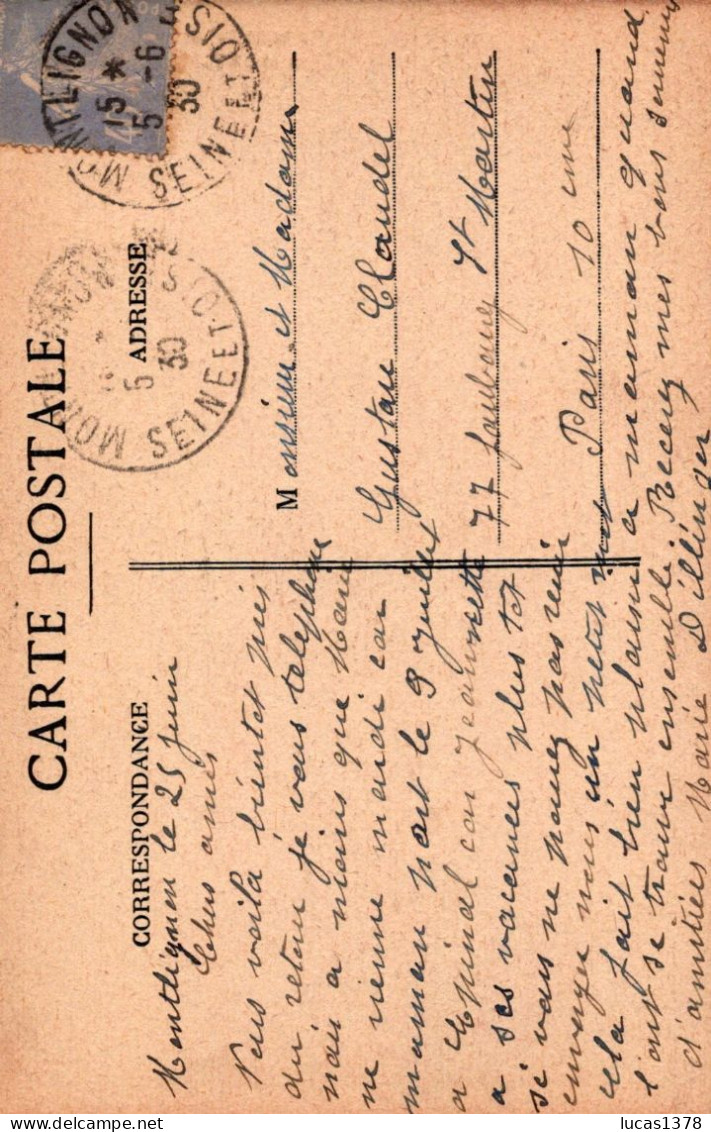 CARTE POSTALE
CORRESPONDANCE
ADRESSE
Montlignon le 25 Juin
Chers amis
Nous voila bientot pres
du retour je vous telephone
rai a moins que Marie
ne vienne mardi car
maman part le 9 Juillet
a Epinal car Jeannette
a ses vacances plus tot
si vous ne pouvez pas venir
envoyez nous un petit mot
cela fait bien plaisir a maman quand
l'ont se trouve ensemble. Recevez mes bons souvenirs
d'amitiés Marie Dillinger
Monsieur et Madame
Gustave Claudel
77 faubourg St Martin
Paris 10 eme
MONTLIGNON
15 *
5 -6
30
SEINE ET OISE
5
30
SEINE ET OIS
lucas1378